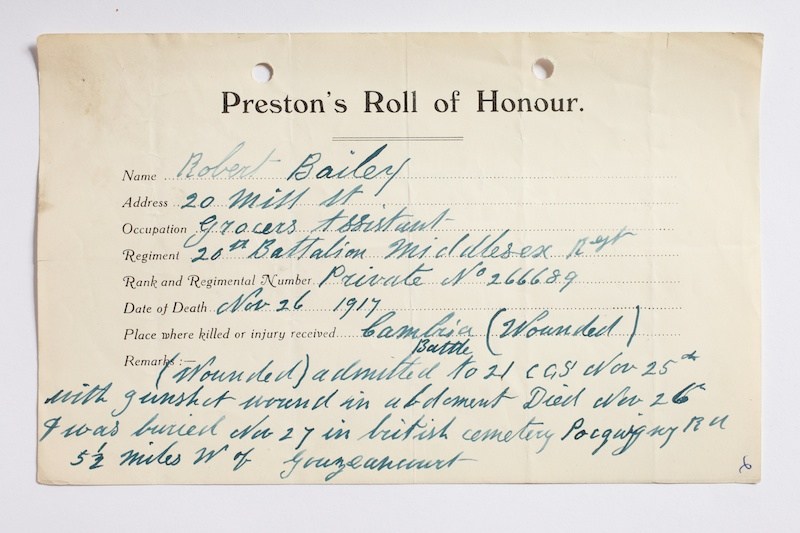 Preston's Roll of Honour.
Name Robert Bailey
Address 20 Mill St
Occupation Grocers Assistant
Regiment 20th Battalion Middlesex Regt
Rank and Regimental Number Private No 266689
Date of Death Nov 26 1917
Place where killed or injury received Cambria (Wounded)
Battle
Remarks:— (Wounded) admitted to 21 CCS Nov 25th
with gunshot wound in abdoment Died Nov 26th
& was buried Nov 27 in british cemetery
5½ miles W of Gouzeaucourt